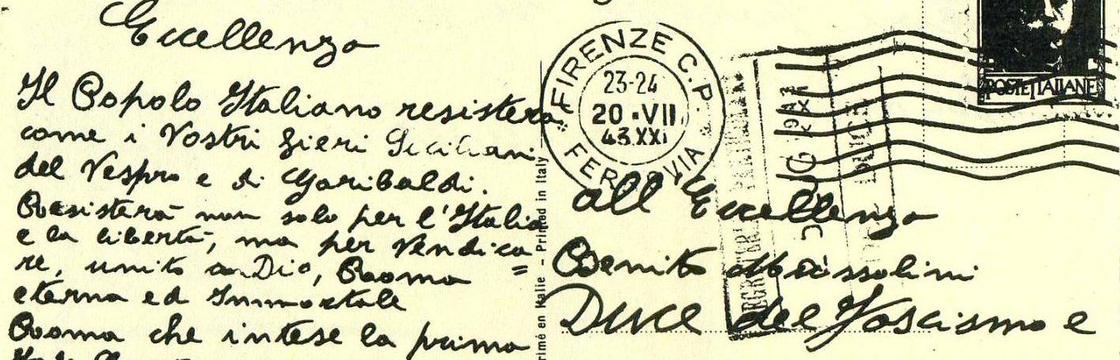 Eccellenza
Il Popolo Italiano resisterà
come i Vostri fieri Siciliani
del Vespro e di Garibaldi.
Resisterà non solo per l'Italia
e la libertà, ma per vendica=
re, unito a Dio, Roma
eterna ed Immortale
Roma che intese la prima
Printed in Italy
rimé en Italie
FIRENZE C.P.
23-24
20·VII
43.XXI
FERROVIA
POSTE ITALIANE
all'Eccellenza
Benito Mussolini
Duce del Fascismo e